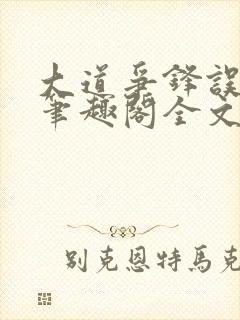 大道争鋒誤
筆趣閣全文
别克恩特馬克